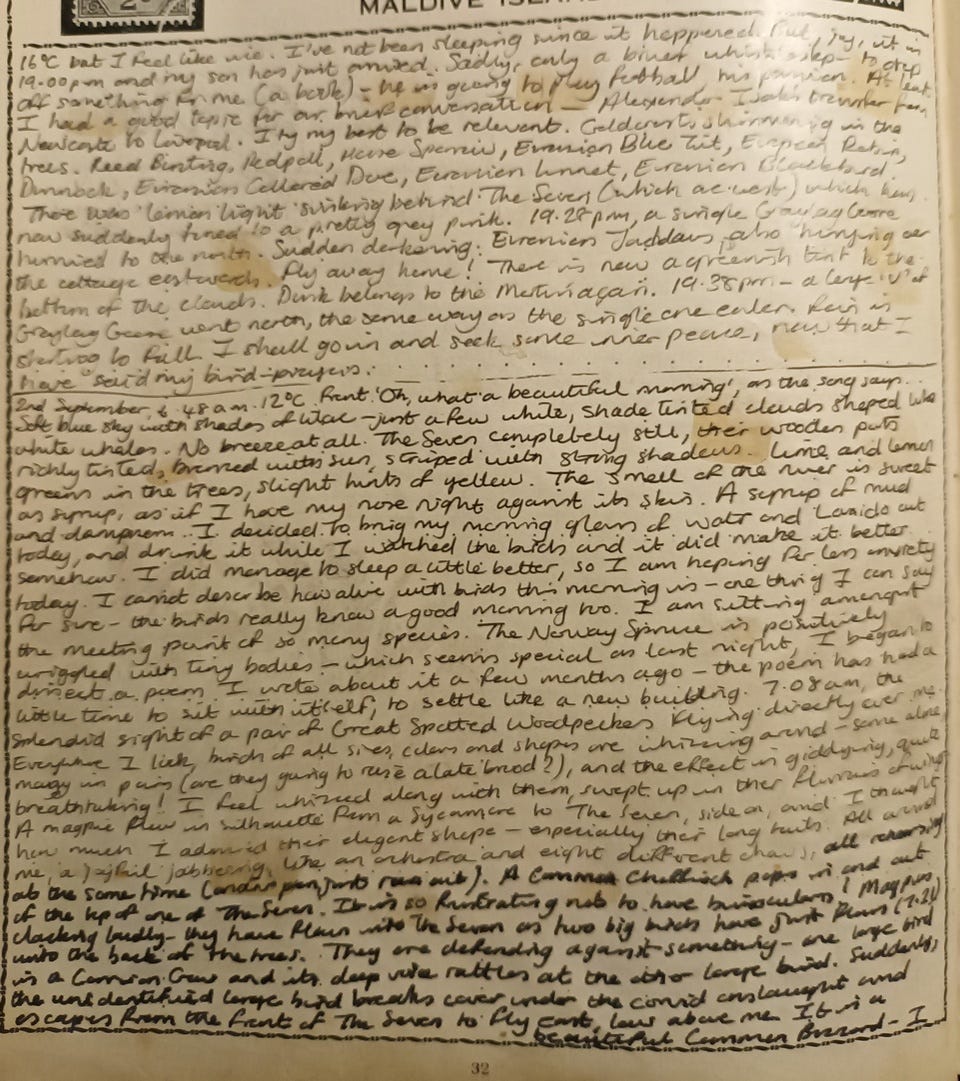 MALDIVE ISLAN
16°C but I feel like ice. I've not been sleeping since it happened. But, joy, it is
19.00pm and my son has just arrived. Sadly, only a brief whistle stop - to drop
off something for me (a book) - he is going to play football, his passion. At least
I had a good topic for our brief conversation - Alexander Isak's transfer from
Newcastle to Liverpool. I try my best to be relevant. Goldcrests shimmering in the
trees. Reed Bunting, Redpoll, House Sparrow, Eurasian Blue Tit, European Robin,
Dunnock, Eurasian Collared Dove, Eurasian Linnet, Eurasian Blackbird.
There was 'lemon light' sinking behind The Seven (which are west) which has
now suddenly tuned to a pretty grey pink. 19.28pm, a single Greylag Goose
hurried to the north. Sudden darkening. Eurasian Jackdaws, also hurrying over
the cottage eastwards. Fly away home! There is now a greenish tint to the
bottom of the clouds. Dusk belongs to the Moon again. 19.38pm - a large 'V' of
Greylag Geese went north, the same way as the single one earlier. Rain is
starting to fall. I shall go in and seek some inner peace, now that I
have said my bird-prayers.
2nd September, 6.48am. 12°C Front. 'Oh, what a beautiful morning', as the song says.
Soft blue sky with shades of lilac - just a few white, shade tinted clouds shaped like
white whales. No breeze at all. The Seven completely still, their wooden parts
richly tinted, bronzed with sun, striped with strong shadows. Lime and lemon
greens in the trees, slight hints of yellow. The smell of the river is sweet
as syrup, as if I have my nose right against its skin. A syrup of mud
and dampness. I decided to bring my morning glass of water and out
today, and drink it while I watched the birds and it did make it better
somehow. I did manage to sleep a little better, so I am hoping for less anxiety
today. I cannot describe how alive with birds this morning is - one thing I can say
for sure - the birds really know a good morning too. I am sitting amongst
the meeting point of so many species. The Norway Spruce is positively
wriggled with tiny bodies - which seems special as last night, I began to
dissect a poem I wrote about it a few months ago - the poem has had a
little time to sit with itself, to settle like a new building. 7.08am, the
splendid sight of a pair of Great Spotted Woodpeckers flying directly over me.
Everywhere I look, birds of all sizes, colors and shapes are whizzing around - some alone,
many in pairs (are they going to raise a late brood?), and the effect is giddying, quite
breathtaking! I feel whizzed along with them, swept up in their flurries of wings
A magpie flew in silhouette from a Sycamore to The Seven, side on, and I thought
how much I admired their elegant shape - especially their long tails. All around
me, a joyful jabbering, like an orchestra and eight different choirs, all rehearsing
at the same time (and a pen just ran out). A Common Chaffinch pops in and out
of the top of one of The Seven. It is so frustrating not to have binoculars! Magpies,
clacking loudly - they have flown into The Seven as two big birds have just flown (7.21)
into the back of the trees. They are defending against something - one large bird
is a Carrion Crow and its deep voice rattles at the other large bird. Suddenly,
the unidentified large bird breaks cover under the corvid onslaught and
escapes from the front of The Seven to fly east, low above me. It is a
beautiful Common Buzzard - I
32